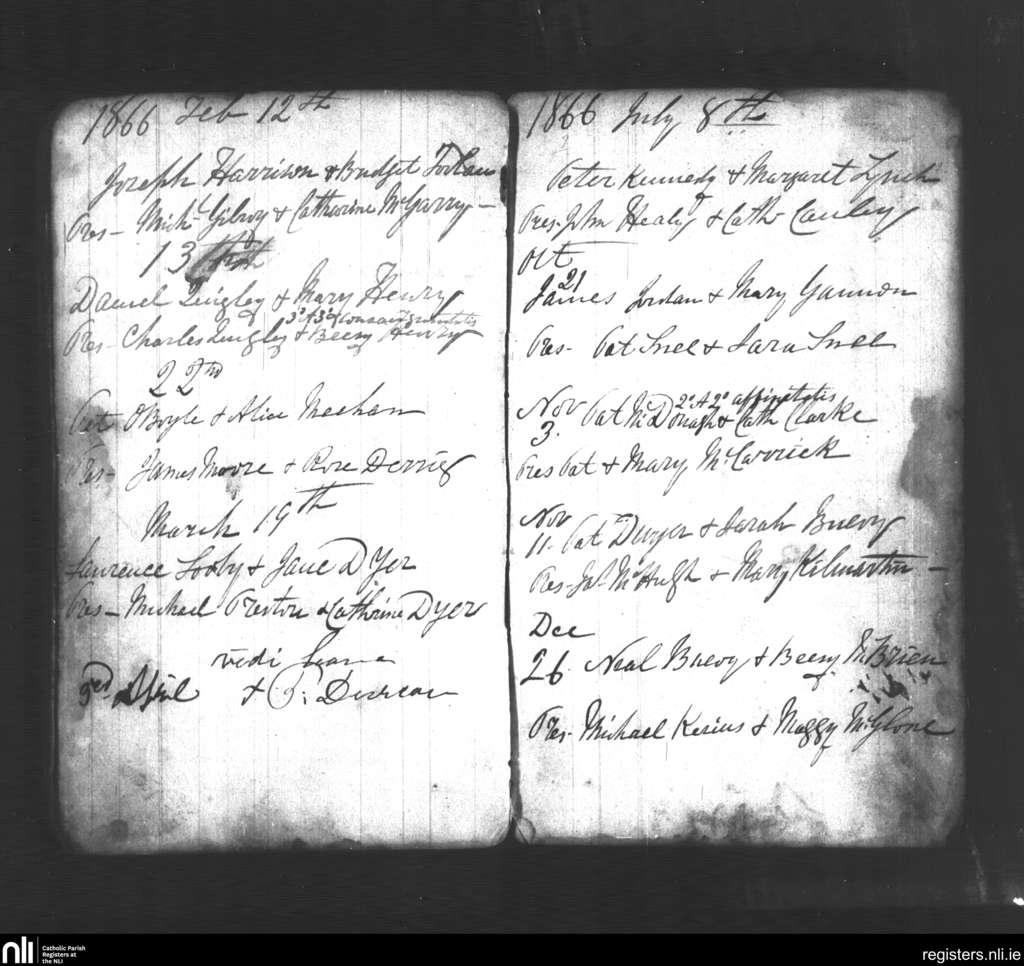 1866 Feb 12th
Joseph Harrison & Bridget
Pres - Michl Gilroy & Catharine McGarry -
13
Daniel Quigley & Mary Henry
3° & 3° consanguinitatis
Pres - Charles Quigley & Beesy Henry
22nd
Pat O'Boyle & Alice Meehan
Pres - James Moore & Rose Derrig
March 19th
Lawrence Looby & Jane Dyer
Pres - Michael Preston & Catherine Dyer
vidi
3rd April & P. Durcan
1866 July 8th
Peter Kennedy & Margaret Lynch
Pres. John Healy & Cath Cauley
Oct
21
James Jordan & Mary Gannon
Pres. Pat Snee & Sara Snee
2° & 2° affinitatis
Nov Pat McDonagh & Cath Clarke
3.
Pres Pat & Mary McCarrick
Nov
11. Pat Dwyer & Sarah
Pres - Jas McHugh & Mary Kilmartin -
Dec
26 Neal & Beesy McBrien
Pres. Michael & Maggy McGlone
nli
Catholic Parish
Registers at
the NLI
registers.nli.ie